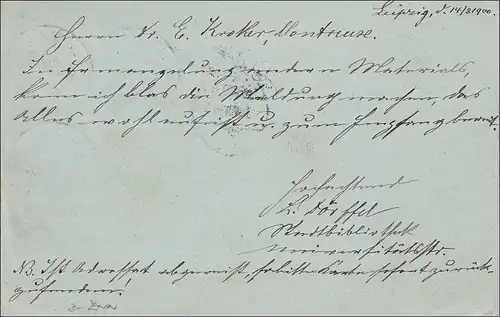 Leipzig, d. 14/8 1900.
Herrn Dr. E. Kroker, Montreux.
In Ermangelung andern Materials,
kann ich blos die Meldung machen, das
Alles wohl auf ist u. zum Empfang bereit.
Hochachtend
L. Dörffel
Stadtbibliothek
Universitätsstr.
NB. Ist Adressat abgereist, so bitte Karte sofort zurück-
zusenden!